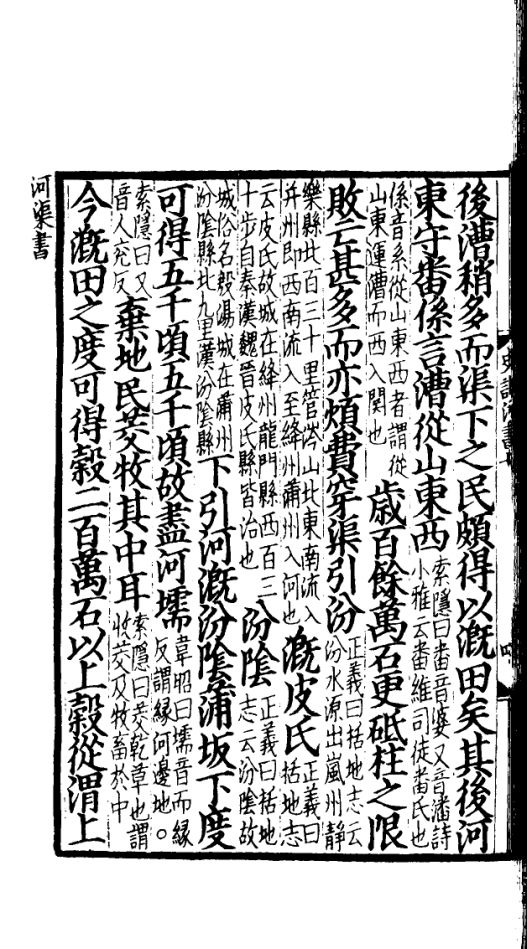 後漕稍多而渠下之民頗得以漑田矣其後河
東守番係言漕從山東西索隱曰番音婆又音潘詩小雅云番維司徒番氏也
係音系從山東西者謂從山東運漕而西入関也歲百餘萬石更砥柱之限
敗亡甚多而亦煩費穿渠引汾正義曰括地志云汾水源出嵐州靜
樂縣北百三十里管涔山北東南流入并州即西南流入至絳州蒲州入河也漑皮氏正義曰括地志
云皮氏故城在絳州龍門縣西百三十步自秦漢魏晉皮氏縣皆治也汾陰正義曰括地志云汾陰故
城俗名殷湯城在蒲州汾陰縣北九里漢汾陰縣下引河漑汾陰蒲坂下度
可得五千頃五千頃故盡河壖韋昭曰壖音而緣反謂緣河邊地。
索隱曰又音人兗反棄地民茭牧其中耳索隱曰茭乾草也謂收茭及牧畜於中
今漑田之度可得穀二百萬石以上穀從渭上
河渠書